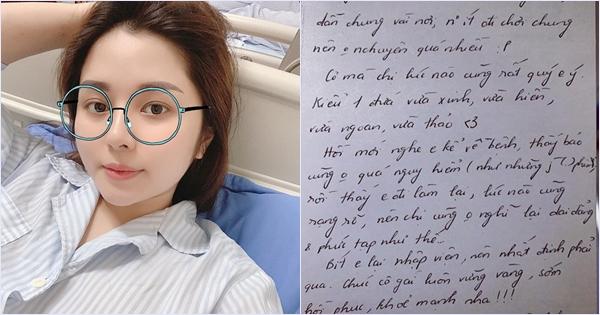 dẫn chung vài nơi, n' ít đi chơi chung
nên o nchuyện quá nhiều :P
Có mà chị lúc nào cũng rất quý e ý.
Kiểu 1 đứa vừa xinh, vừa hiền,
vừa ngoan, vừa thảo <3
Hồi mới nghe e kể về bệnh, thấy bảo
cũng o quá nguy hiểm (như những j
rồi thấy e đi làm lại, lúc nào cũng
rạng rỡ, nên chị cũng o nghĩ lại dai dẳng
& phức tạp như thế...
Biết e lại nhập viện, nên nhất định phải
qua. Chúc cô gái luôn vững vàng, sớm
hồi phục, khoẻ mạnh nha !!!